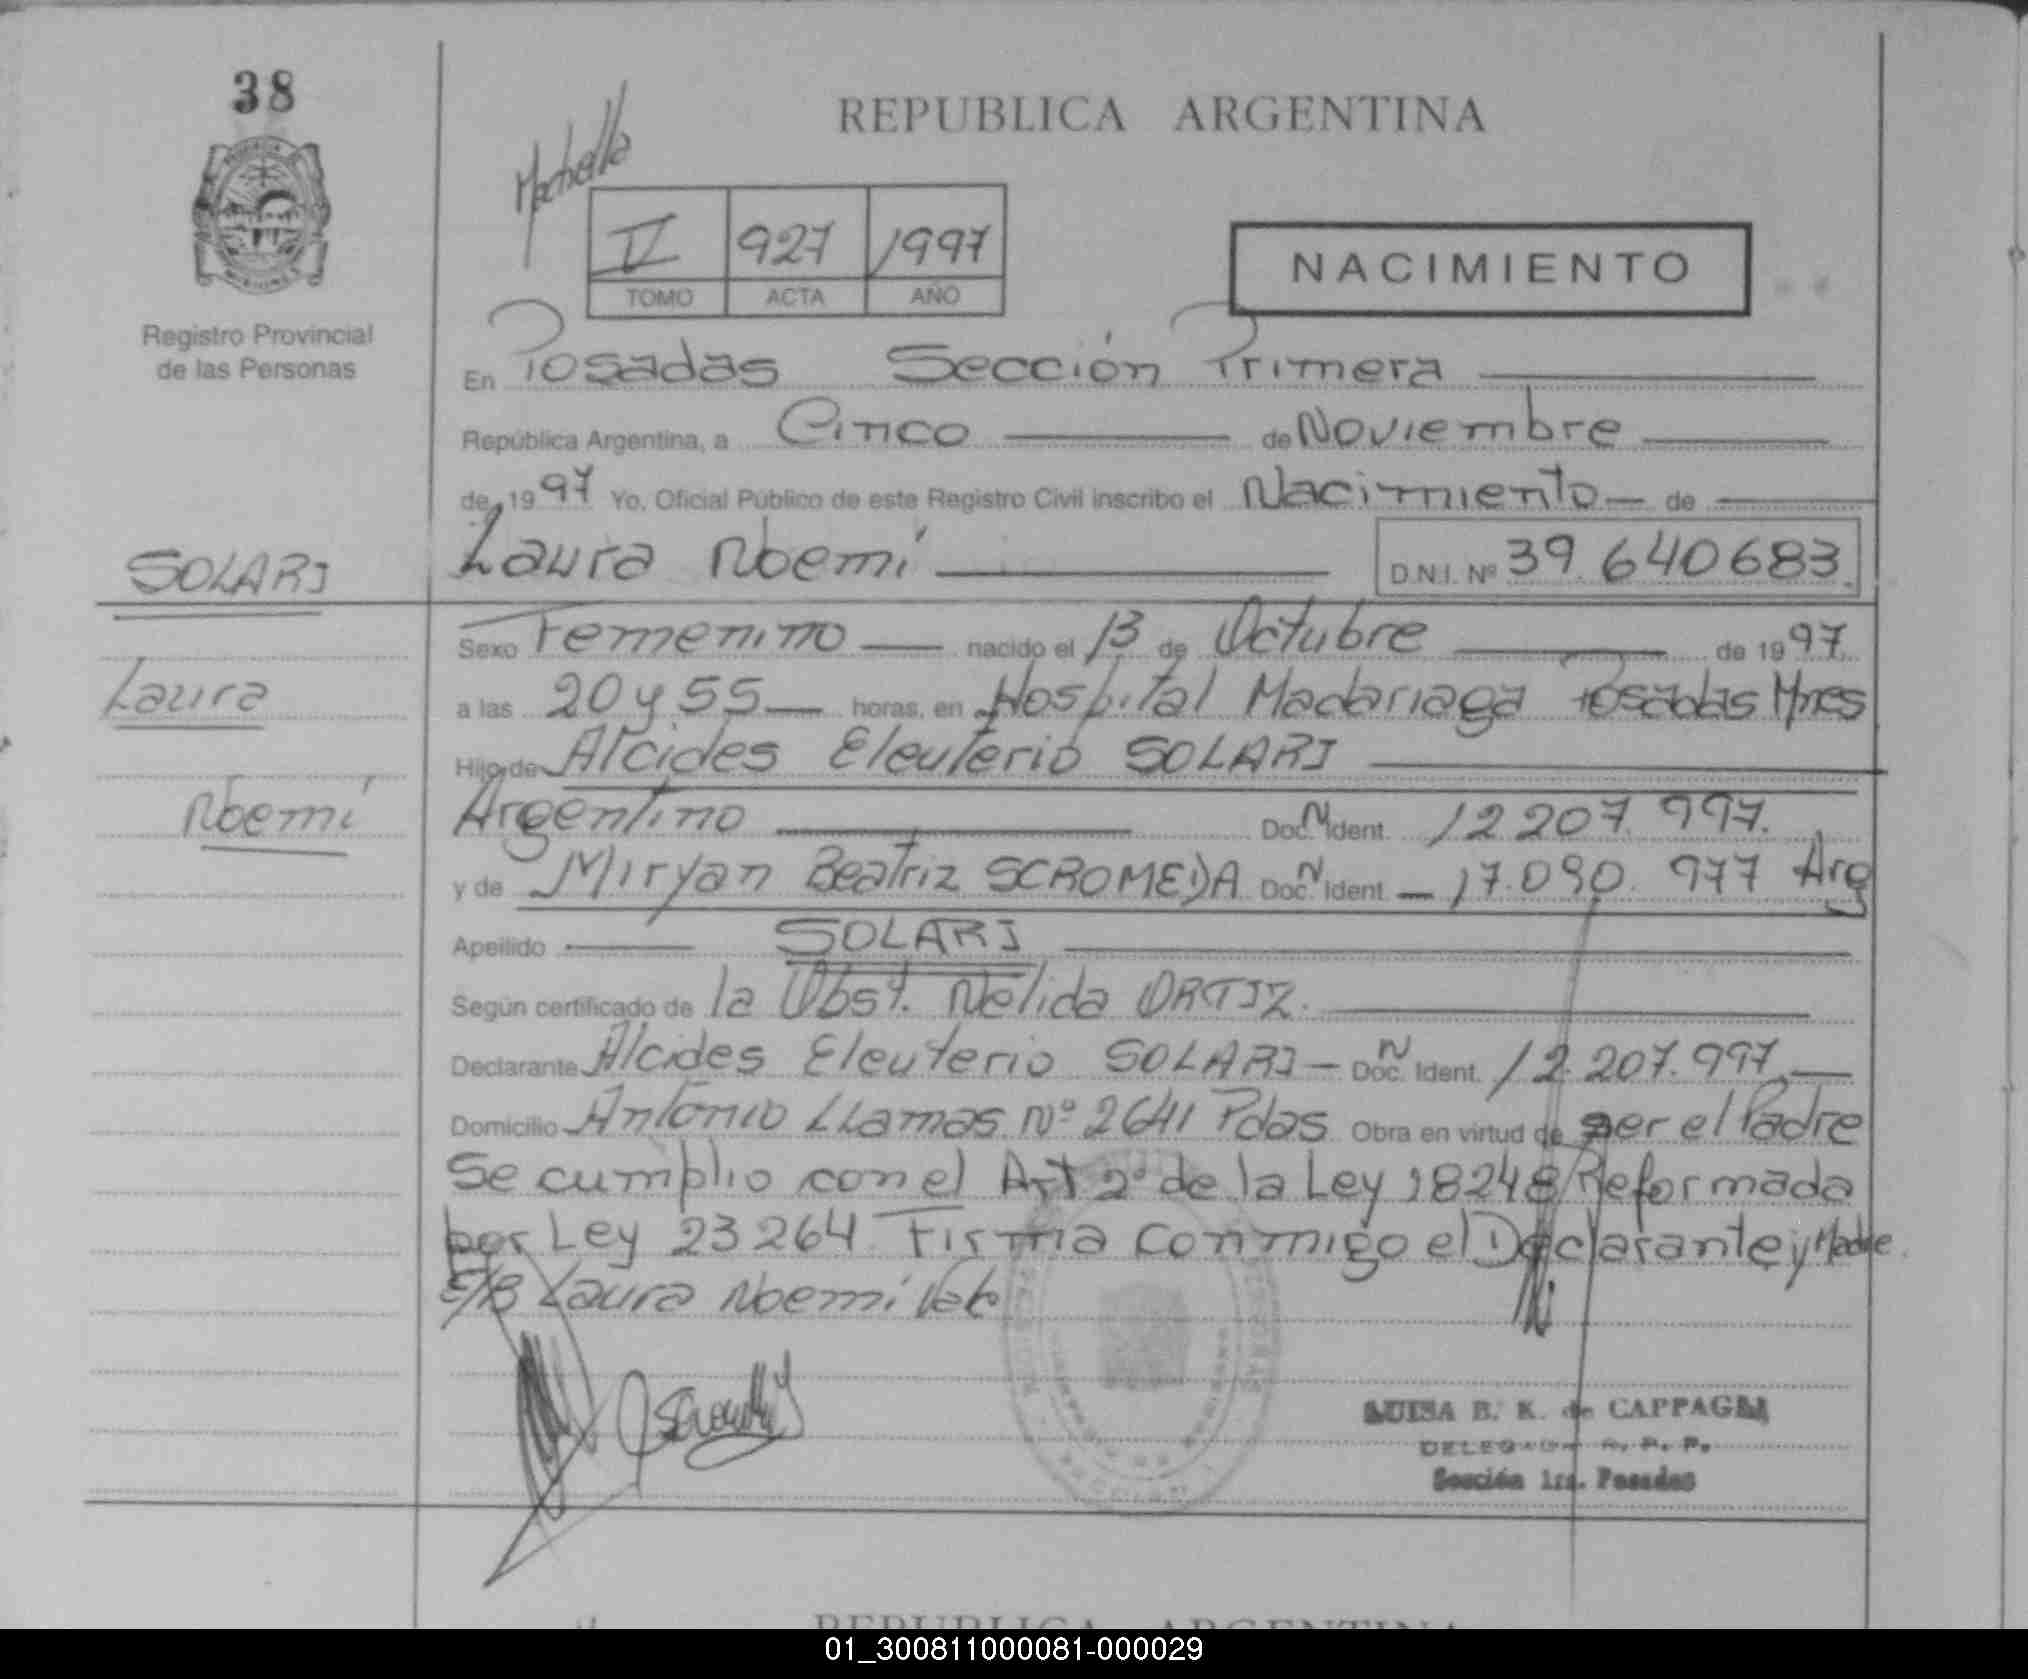 38
REPUBLICA ARGENTINA
II 927 1997
TOMO ACTA AÑO
NACIMIENTO
Registro Provincial
de las Personas
En Posadas Sección Primera
República Argentina, a Cinco de Noviembre
de 1997 Yo, Oficial Público de este Registro Civil inscribo el Nacimiento de
SOLARI
Laura Noemí D.N.I. Nº 39.640683
Sexo Femenino nacido el 13 de Octubre de 1997
Laura
a las 20 y 55 horas, en Hospital Madariaga Posadas Mnes
Hijo de Alcides Eleuterio SOLARI
Noemí
Argentino Doc. N Ident. 12207.997.
y de Miryan Beatriz SCROMEDA Doc. N Ident. 17.090.977 Arg
Apellido SOLARI
Según certificado de la Obst. Nelida ORTIZ.
Declarante Alcides Eleuterio SOLARI Doc. N Ident. 12.207.997
Domicilio Antonio LLamas Nº 2641 Pdas Obra en virtud de ser el Padre
Se cumplio con el Art 2º de la Ley 18248 Reformada
por Ley 23264 Firma conmigo el Declarante y Madre.
E/B Laura Noemí
LUISA B. K. de CAPPAGLI
DELEGADA R. P. P.
Sección 1ra. Posadas
REPUBLICA ARGENTINA
01_300811000081-000029